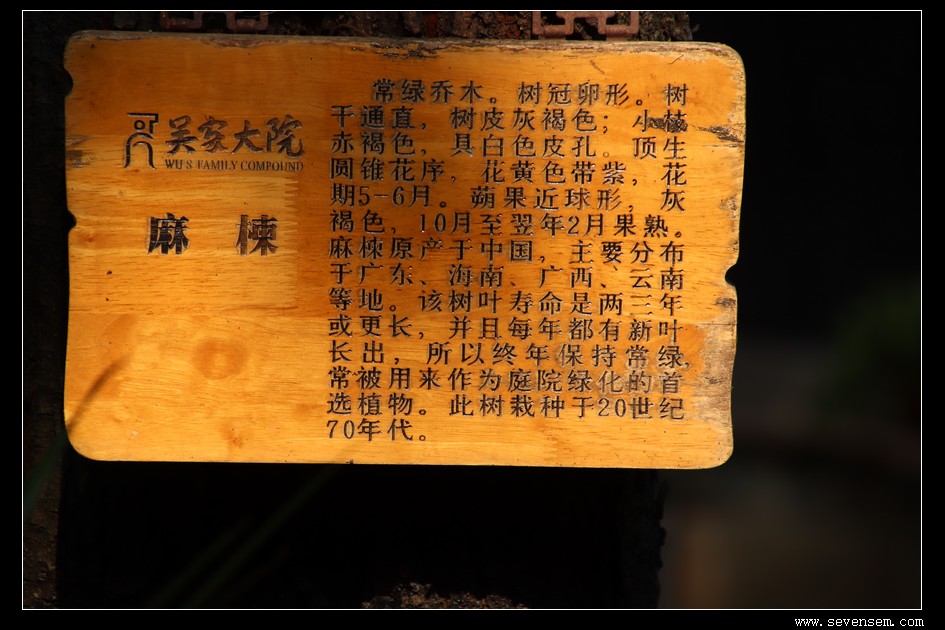 吴家大院
WU'S FAMILY COMPOUND
麻楝
常绿乔木。树冠卵形。树
干通直，树皮灰褐色；小枝
赤褐色，具白色皮孔。顶生
圆锥花序，花黄色带紫，花
期5-6月。蒴果近球形，灰
褐色，10月至翌年2月果熟。
麻楝原产于中国，主要分布
于广东、海南、广西、云南
等地。该树叶寿命是两三年
或更长，并且每年都有新叶
长出，所以终年保持常绿，
常被用来作为庭院绿化的首
选植物。此树栽种于20世纪
70年代。
www.sevensem.com